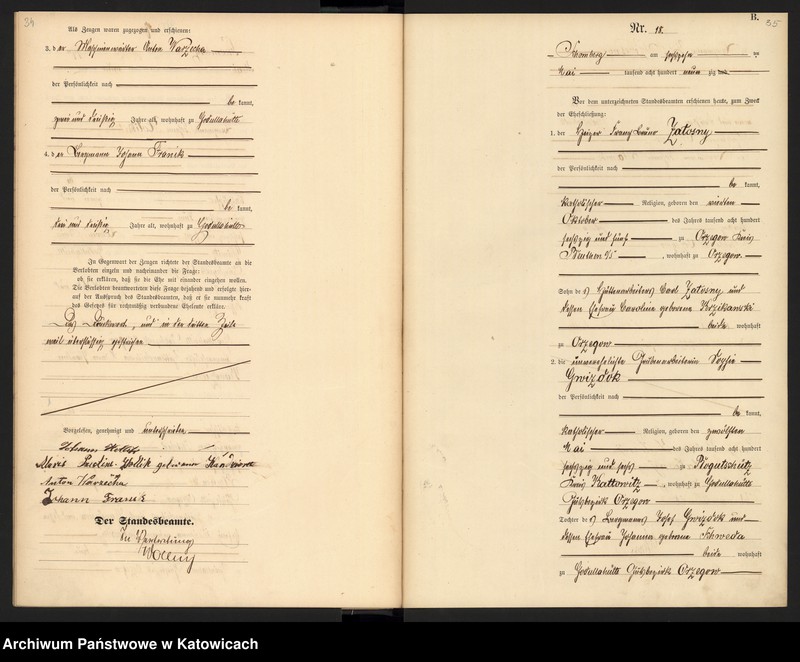 34
Als Zeugen waren zugezogen und erschienen:
3. der Maschinenwärter Anton Warzecha
der Persönlichkeit nach
be kannt,
zwei und dreißig Jahre alt, wohnhaft zu Godullahütte
4. der Bergmann Johann Franik
der Persönlichkeit nach
be kannt,
drei und dreißig Jahre alt, wohnhaft zu Godullahütte
In Gegenwart der Zeugen richtete der Standesbeamte an die
Verlobten einzeln und nacheinander die Frage:
ob sie erklären, daß sie die Ehe mit einander eingehen wollen.
Die Verlobten beantworteten diese Frage bejahend und erfolgte hier-
auf der Ausspruch des Standesbeamten, daß er sie nunmehr kraft
des Gesetzes für rechtmäßig verbundene Eheleute erkläre.
und in der dritten Zeile
weil überflüssig gestrichen
Vorgelesen, genehmigt und unterschrieben
Johann
Maria geborene
Anton Warzecha
Johann Franik
Der Standesbeamte.
In Vertretung
B.
35
Nr. 18.
am sechszehn ten
Mai tausend acht hundert neun zig
Vor dem unterzeichneten Standesbeamten erschienen heute, zum Zweck
der Eheschließung:
1. der Heizer Franz Zatosny
der Persönlichkeit nach
be kannt,
katholischer Religion, geboren den vierten
Oktober des Jahres tausend acht hundert
sechszig und fünf zu Orzegow Kreis
Beuthen O/S, wohnhaft zu Orzegow
Sohn des Hüttenarbeiters Carl Zatosny und
dessen Ehefrau Carolina geborene Krzikawski
beide wohnhaft
zu Orzegow
2. die unverehelichte Grubenarbeiterin Sophie
Gwizdok
der Persönlichkeit nach
be kannt,
katholischer Religion, geboren den zwölften
Mai des Jahres tausend acht hundert
sechszig und sechs zu Biegutschütz
Kreis Kattowitz, wohnhaft zu Godullahütte
Gutsbezirk Orzegow
Tochter des Bergmanns Josef Gwizdok und
dessen Ehefrau Johanna geborene Schweda
beide wohnhaft
zu Godullahütte Gutsbezirk Orzegow
Archiwum Państwowe w Katowicach